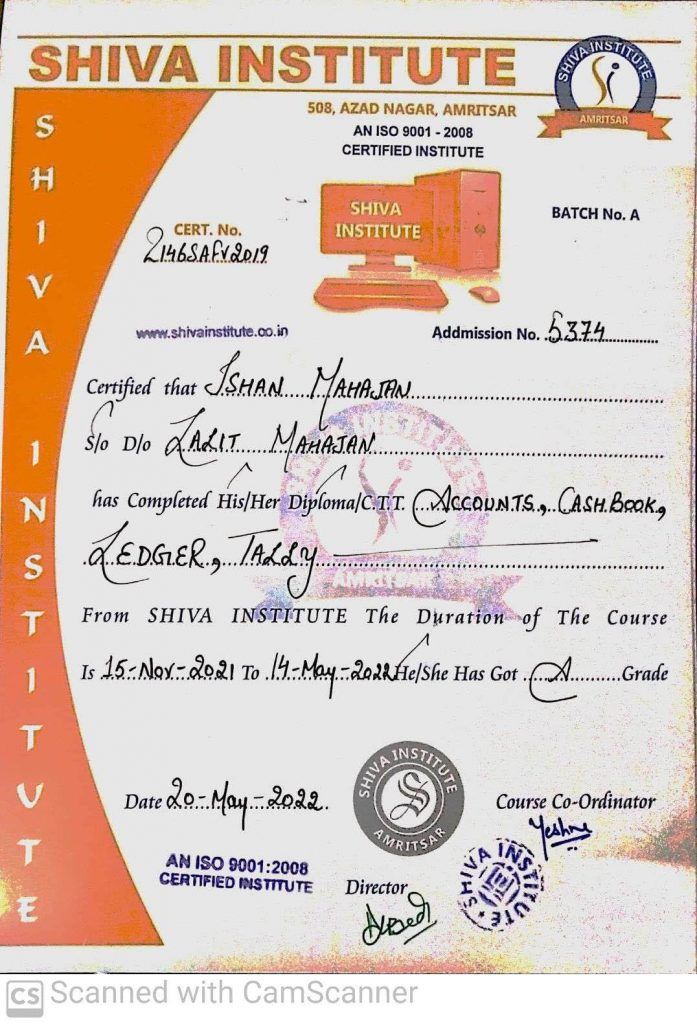 SHIVA INSTITUTE
SHIVA INSTITUTE
AMRITSAR
508, AZAD NAGAR, AMRITSAR
AN ISO 9001 - 2008
CERTIFIED INSTITUTE
SHIVA INSTITUTE
SHIVA
INSTITUTE
BATCH No. A
CERT. No.
2146SAFV2019
www.shivainstitute.co.in
Addmission No. 5374
Certified that ISHAN MAHAJAN
S/o D/o LALIT MAHAJAN
has Completed His/Her Diploma/C.T.T. ACCOUNTS, CASH BOOK,
LEDGER, TALLY
AMRITSAR
From SHIVA INSTITUTE The Duration of The Course
Is 15-Nov-2021 To 14-May-2022 He/She Has Got A Grade
SHIVA INSTITUTE
AMRITSAR
Date 20-May-2022
Course Co-Ordinator
AN ISO 9001:2008
CERTIFIED INSTITUTE
Director
SHIVA INSTITUTE
CS Scanned with CamScanner